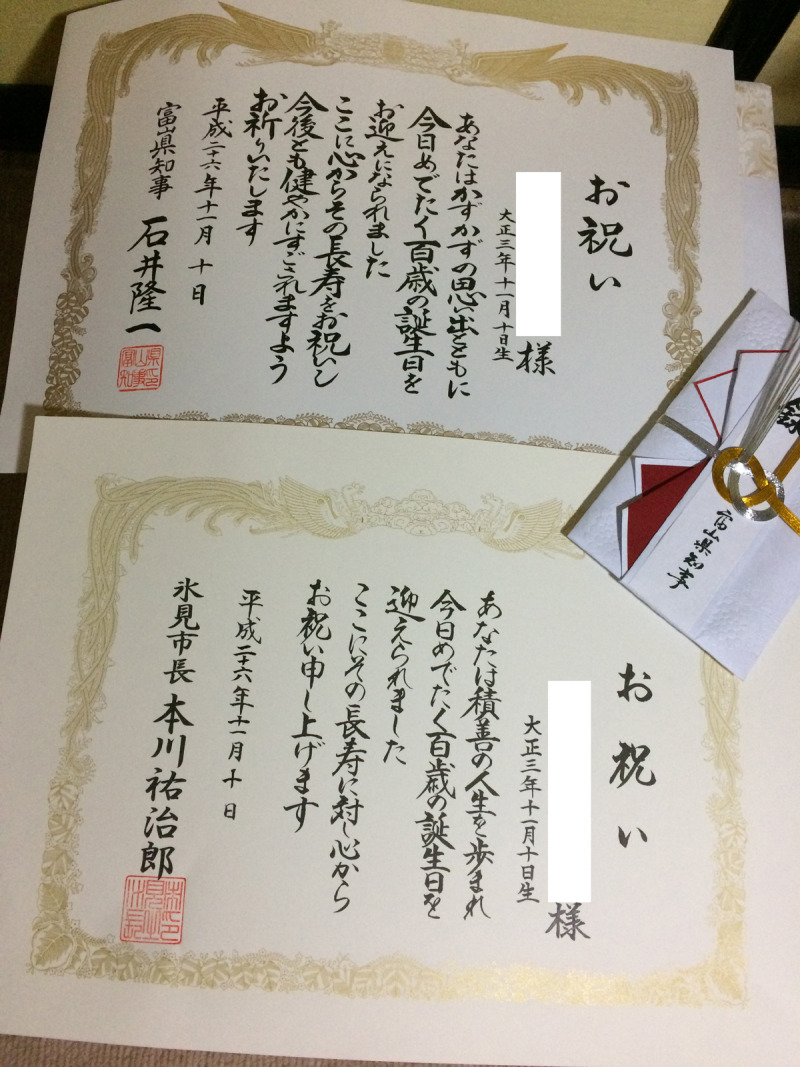 お祝い
様
大正三年十一月十日生
あなたはかずかずの思い出とともに
今日めでたく百歳の誕生日を
お迎えになられました
ここに心からその長寿をお祝いし
今後とも健やかにすごされますよう
お祈りいたします
平成二十六年十一月十日
富山県知事 石井隆一
富山県知事
お祝い
様
大正三年十一月十日生
あなたは積善の人生を歩まれ
今日めでたく百歳の誕生日を
迎えられました
ここにその長寿に対し心から
お祝い申し上げます
平成二十六年十一月十日
氷見市長 本川祐治郎